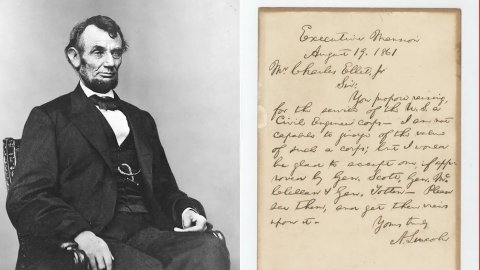 Executive Mansion
August 19, 1861
Mr Charles Ellet, Jr
Sir:
You propose raising
for the service of the U.S. a
Civil Engineer corps— I am not
capable to judge of the value
of such a corps; but I would
be glad to accept one if app-
roved by Gen. Scott, Gen. Mc
Clellan & Gen. Totten— Please
see them, and get their views
upon it—
Yours truly
A. Lincoln